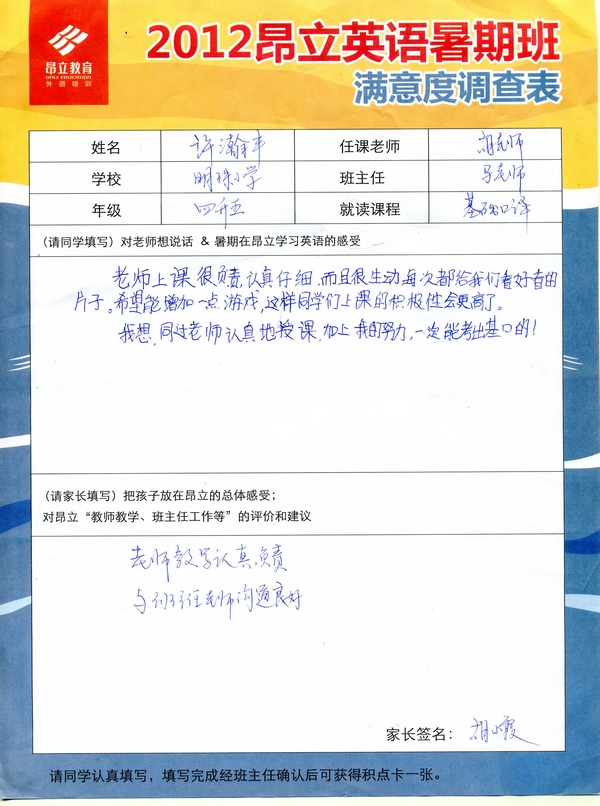 昂立教育
ONLY EDUCATION
外语培训
2012昂立英语暑期班
满意度调查表
姓名 许瀚丰 任课老师 胡老师
学校 明珠小学 班主任 马老师
年级 四升五 就读课程 基础口译
(请同学填写)对老师想说话 & 暑期在昂立学习英语的感受
老师上课很负责,认真仔细,而且很生动,每次都给我们看好看的
片子。希望能增加一点游戏,这样同学们上课的积极性会更高了。
我想,同过老师认真地授课,加上我的努力,一定能考出基口的!
(请家长填写)把孩子放在昂立的总体感受;
对昂立“教师教学、班主任工作等”的评价和建议
老师教学认真,负责
与班主任老师沟通良好
家长签名:
请同学认真填写,填写完成经班主任确认后可获得积点卡一张。